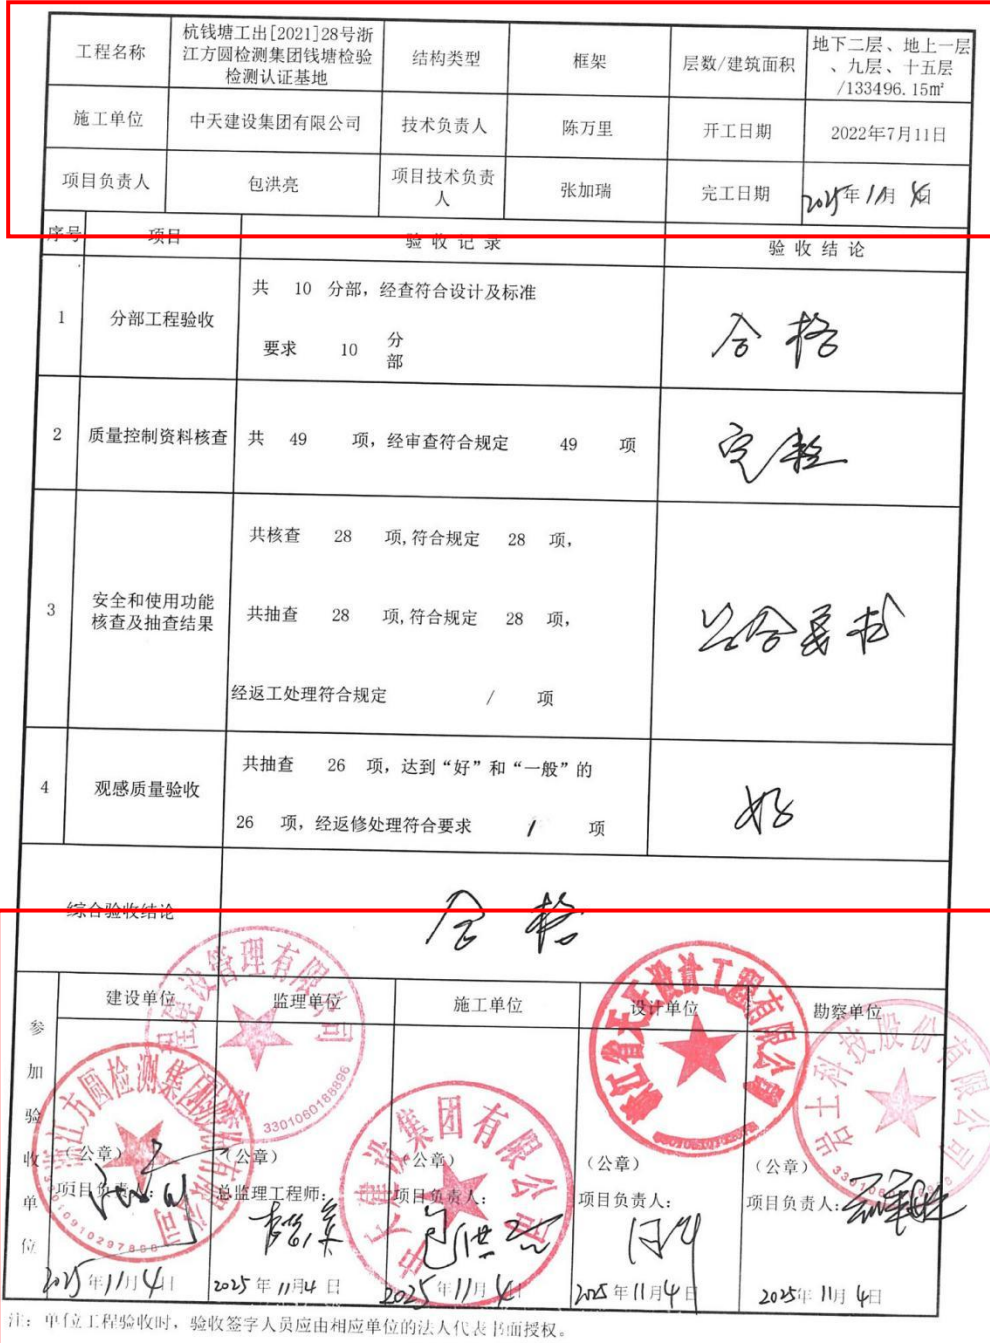 工程名称 杭钱塘工出[2021]28号浙江方圆检测集团钱塘检验检测认证基地 结构类型 框架 层数/建筑面积 地下二层、地上一层、九层、十五层/133496.15㎡
施工单位 中天建设集团有限公司 技术负责人 陈万里 开工日期 2022年7月11日
项目负责人 包洪亮 项目技术负责人 张加瑞 完工日期 2025年11月4日
序号 项目 验收记录 验收结论
1 分部工程验收 共 10 分部，经查符合设计及标准
要求 10 分部 合格
2 质量控制资料核查 共 49 项，经审查符合规定 49 项 完整
3 安全和使用功能核查及抽查结果 共核查 28 项,符合规定 28 项，
共抽查 28 项,符合规定 28 项，
经返工处理符合规定 / 项
4 观感质量验收 共抽查 26 项，达到“好”和“一般”的
26 项，经返修处理符合要求 / 项 好
综合验收结论 合格
参加验收单位
建设单位 监理单位 施工单位 设计单位 勘察单位
(公章) (公章) (公章) (公章) (公章)
项目负责人: 总监理工程师: 项目负责人: 项目负责人: 项目负责人:
包洪亮
2025年11月4日 2025年11月4日 2025年11月4日 2025年11月4日 2025年11月4日
3301060188896
33010910297868
注: 单位工程验收时，验收签字人员应由相应单位的法人代表书面授权。